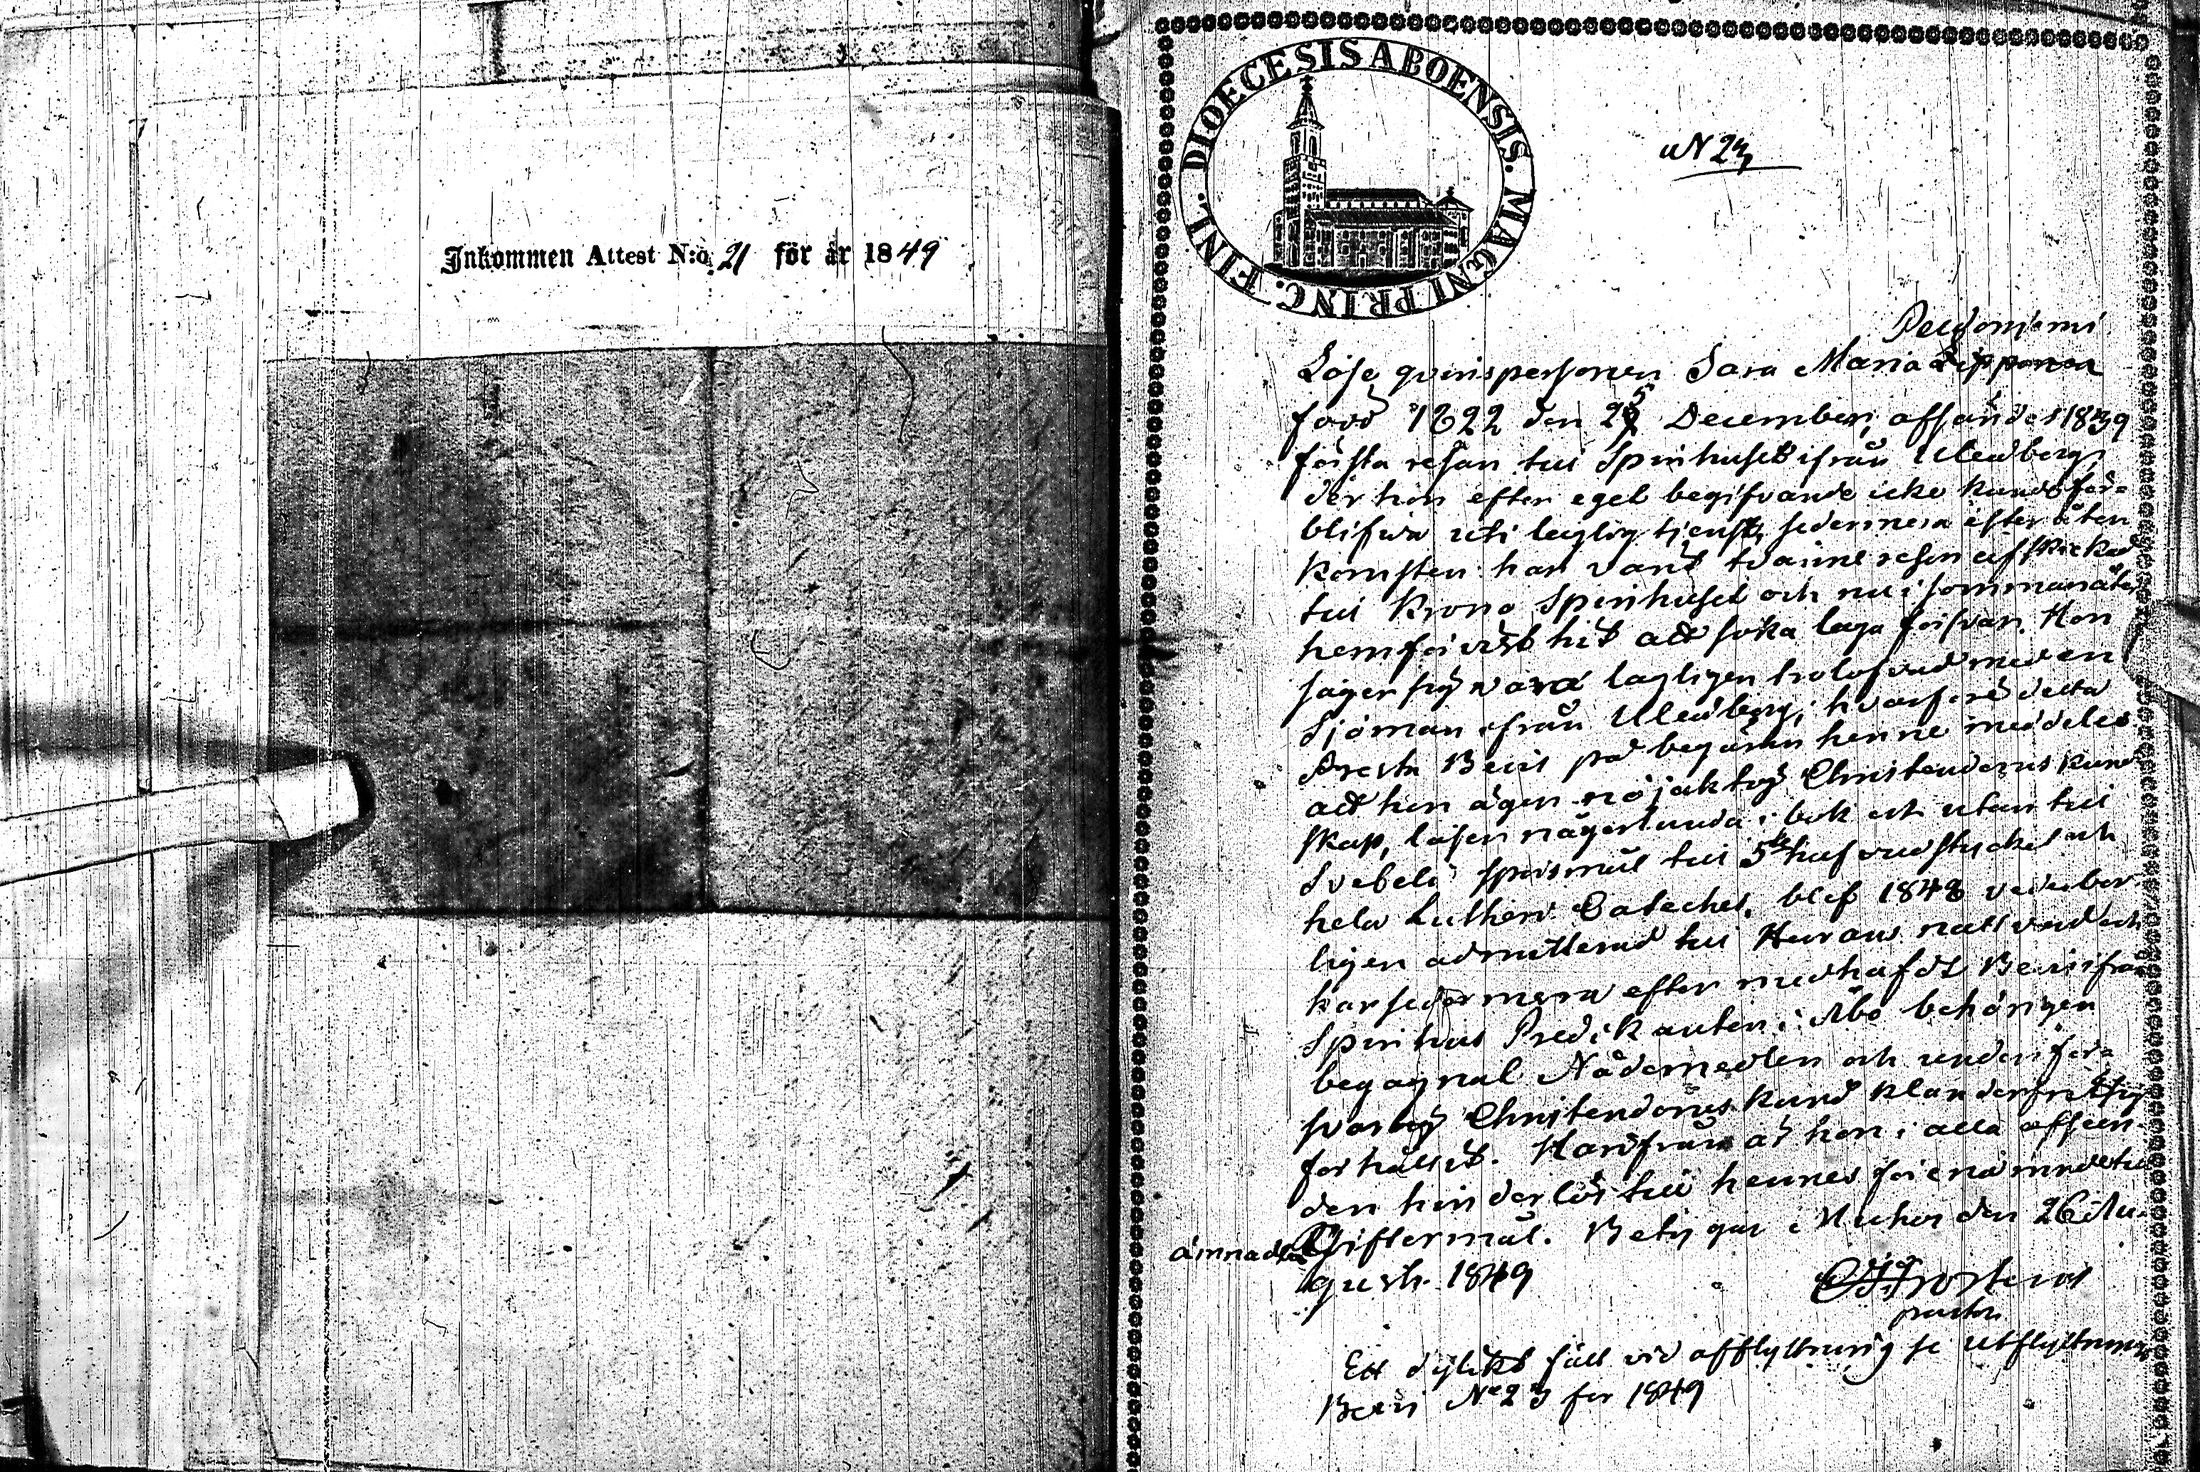 Inkommen Attest N:o 21 för år 1849
DIOECESIS ABOENSIS. MAGNI PRINC. FINL.
N 23
Peldoniemi
Lösa qvinspersonen Sara Maria
född 1822 den 25 December, afsändes 1839
första resan till Spinhuset ifrån Uleåborg,
der hon efter eget begifvande icke kunde för-
blifva uti laglig tjenst, sedermera efter åter
komsten har varit tvänne resor afskickad
till Krono Spinhuset och nu i sommar åter
hemförvist hit att söka laga försvar. Hon
säger sig vara lagligen trolofvad med en
Sjöman ifrån Uleåborg; hvarföre detta
Prestn Bevis på begäran henne meddelas
att hon äger nöjaktig Christendomskund
skap, läser någorlunda i bok och utan till
Svebelii spörsmål till 5te hufvudstycket och
hela Lutheri Cateches, blef 1848 vederbör
ligen admitterad till Herrans nattvard och
har sedermera efter medhafdt Bevis ifrån
Spinhus Predikanten i Åbo behörigen
begagnat Nådemedlen och under för-
svarlig Christendomskund klanderfritt sig
förhållit. Härifrån är hon i alla afseen-
den hinderlös till hennes förenämnde till
ämnade Giftermål. Betygar i Muhos den 26 Au-
gusti 1849
Ett dylikt fäll vid afflyttning se Utflyttnings
Bevis No 23 för 1849